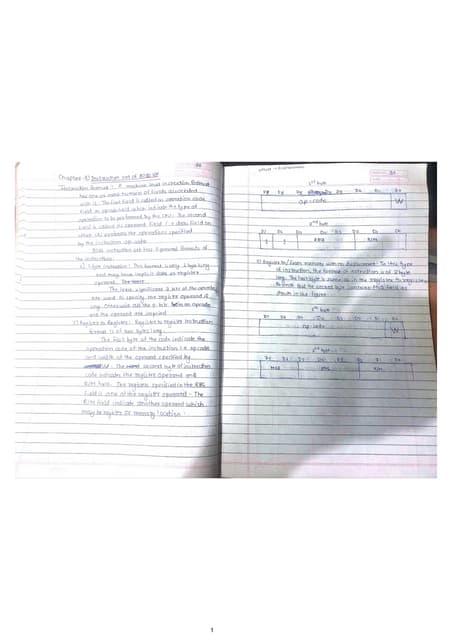 Chapter-3) Instruction set of 8086 UP
Instruction format :- A machine level instruction format
has one or more numbers of fields associated
with it. The first field is called as operation code
field or opcode field, which indicate the type of
operation to be performed by the CPU. The second
field is called as operand field / data field on
which CPU perform the operations specified
by the instruction op-code.
8086 instruction set has 6 general formats of
the instruction:
1) 1 byte instruction: This format is only 1 byte long
and may have implicit data or register
operand.
The least significance 3 bits of the opcode
are used to specify the register operand if
any. Otherwise all the 8 bits form an opcode
and the operand are implied
2) Register to Register: Register to register instruction
format is of two bytes long.
The first byte of the code indicate the
operation code of the instruction i.e. op code
and width of the operand specified by
The second byte of instruction
code indicate the register operand and
R/M field. The register specified in the REG
field is one of the register operand. The
R/M field indicate another operand which
may be register or memory location.
31
1st byte
op-code W
2nd byte
1 1 REG R/M
3) Register to/from memory with no displacement: In this type
of instruction, the format of instruction is of 2 byte
long. The first byte is same as in the register to register
format. But the second byte contains MOD field as
shown in the figure
1st byte
op code W
2nd byte
MOD REG R/M
1